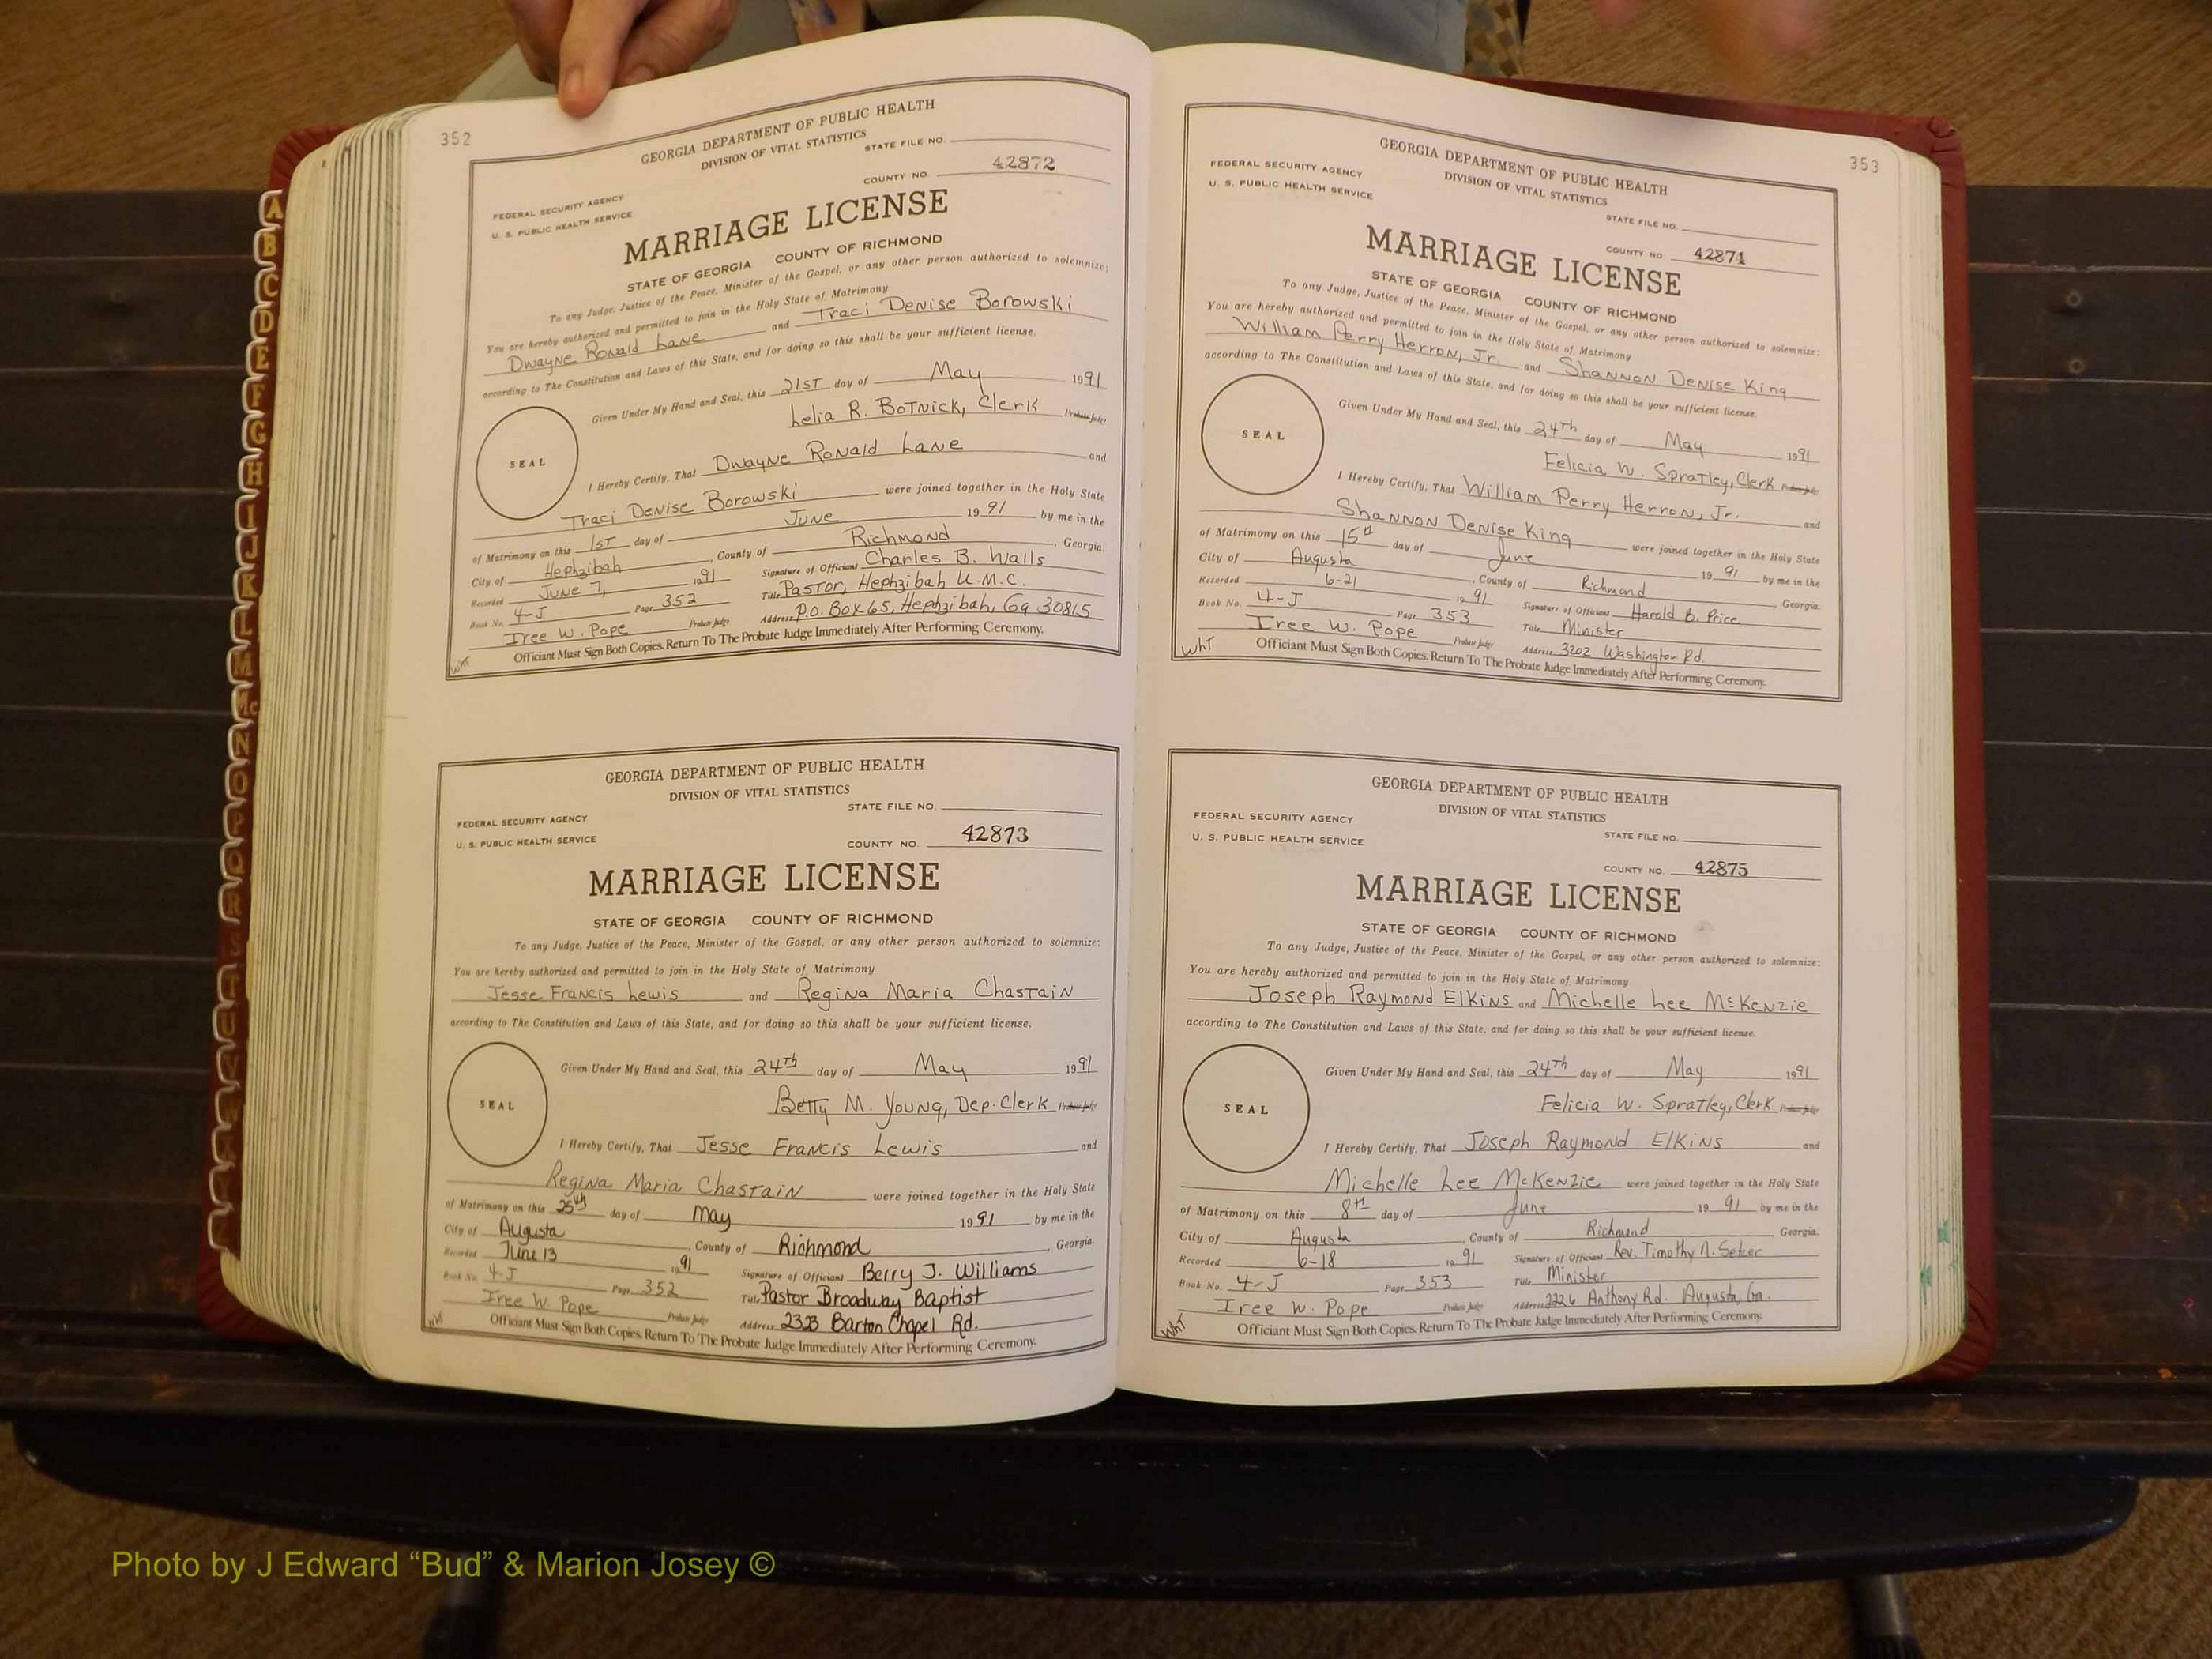 352
GEORGIA DEPARTMENT OF PUBLIC HEALTH
DIVISION OF VITAL STATISTICS
STATE FILE NO.
FEDERAL SECURITY AGENCY
U. S. PUBLIC HEALTH SERVICE
COUNTY NO. 42872
MARRIAGE LICENSE
STATE OF GEORGIA COUNTY OF RICHMOND
To any Judge, Justice of the Peace, Minister of the Gospel, or any other person authorized to solemnize:
You are hereby authorized and permitted to join in the Holy State of Matrimony
Dwayne Ronald Lane and Traci Denise Borowski
according to The Constitution and Laws of this State, and for doing so this shall be your sufficient license.
Given Under My Hand and Seal, this 21ST day of May 1991
SEAL
Lelia R. Botnick, Clerk Probate Judge
I Hereby Certify, That Dwayne Ronald Lane and
Traci Denise Borowski were joined together in the Holy State
of Matrimony on this 1ST day of June 1991 by me in the
City of Hephzibah, County of Richmond, Georgia.
Recorded June 7, 1991 Signature of Officiant Charles B. Walls
Book No. 4-J Page 352 Title Pastor, Hephzibah U.M.C.
Iree W. Pope Probate Judge Address P.O. Box 65, Hephzibah, Ga 30815
WHT Officiant Must Sign Both Copies. Return To The Probate Judge Immediately After Performing Ceremony.
GEORGIA DEPARTMENT OF PUBLIC HEALTH
DIVISION OF VITAL STATISTICS
STATE FILE NO.
FEDERAL SECURITY AGENCY
U. S. PUBLIC HEALTH SERVICE
COUNTY NO. 42873
MARRIAGE LICENSE
STATE OF GEORGIA COUNTY OF RICHMOND
To any Judge, Justice of the Peace, Minister of the Gospel, or any other person authorized to solemnize:
You are hereby authorized and permitted to join in the Holy State of Matrimony
Jesse Francis Lewis and Regina Maria Chastain
according to The Constitution and Laws of this State, and for doing so this shall be your sufficient license.
Given Under My Hand and Seal, this 24th day of May 1991
SEAL
Betty M. Young, Dep. Clerk Probate Judge
I Hereby Certify, That Jesse Francis Lewis and
Regina Maria Chastain were joined together in the Holy State
of Matrimony on this 25th day of May 1991 by me in the
City of Augusta, County of Richmond, Georgia.
Recorded June 13 1991 Signature of Officiant Berry J. Williams
Book No. 4-J Page 352 Title Pastor Broadway Baptist
Iree W. Pope Probate Judge Address 2323 Barton Chapel Rd.
WHT Officiant Must Sign Both Copies. Return To The Probate Judge Immediately After Performing Ceremony.
353
GEORGIA DEPARTMENT OF PUBLIC HEALTH
DIVISION OF VITAL STATISTICS
FEDERAL SECURITY AGENCY
U. S. PUBLIC HEALTH SERVICE
STATE FILE NO.
COUNTY NO. 42874
MARRIAGE LICENSE
STATE OF GEORGIA COUNTY OF RICHMOND
To any Judge, Justice of the Peace, Minister of the Gospel, or any other person authorized to solemnize:
You are hereby authorized and permitted to join in the Holy State of Matrimony
William Perry Herron, Jr. and Shannon Denise King
according to The Constitution and Laws of this State, and for doing so this shall be your sufficient license.
Given Under My Hand and Seal, this 24th day of May 1991
SEAL
Felicia W. Spratley, Clerk Probate Judge
I Hereby Certify, That William Perry Herron, Jr. and
Shannon Denise King were joined together in the Holy State
of Matrimony on this 15th day of June 1991 by me in the
City of Augusta, County of Richmond Georgia.
Recorded 6-21 1991 Signature of Officiant Harold B. Price
Book No. 4-J Page 353 Title Minister
Iree W. Pope Probate Judge Address 3202 Washington Rd.
WHT Officiant Must Sign Both Copies. Return To The Probate Judge Immediately After Performing Ceremony.
GEORGIA DEPARTMENT OF PUBLIC HEALTH
DIVISION OF VITAL STATISTICS
FEDERAL SECURITY AGENCY
U. S. PUBLIC HEALTH SERVICE
STATE FILE NO.
COUNTY NO. 42875
MARRIAGE LICENSE
STATE OF GEORGIA COUNTY OF RICHMOND
To any Judge, Justice of the Peace, Minister of the Gospel, or any other person authorized to solemnize:
You are hereby authorized and permitted to join in the Holy State of Matrimony
Joseph Raymond Elkins and Michelle Lee McKenzie
according to The Constitution and Laws of this State, and for doing so this shall be your sufficient license.
Given Under My Hand and Seal, this 24th day of May 1991
SEAL
Felicia W. Spratley, Clerk Probate Judge
I Hereby Certify, That Joseph Raymond Elkins and
Michelle Lee McKenzie were joined together in the Holy State
of Matrimony on this 8th day of June 1991 by me in the
City of Augusta, County of Richmond Georgia.
Recorded 6-18 1991 Signature of Officiant Rev. Timothy N. Setzer
Book No. 4-J Page 353 Title Minister
Iree W. Pope Probate Judge Address 2226 Anthony Rd. Augusta, Ga.
WHT Officiant Must Sign Both Copies. Return To The Probate Judge Immediately After Performing Ceremony.
A
B
C
D
E
F
G
H
I
J
K
L
M
Mc
N
O
P
Q
R
S
T
U
V
W
Photo by J Edward “Bud” & Marion Josey ©